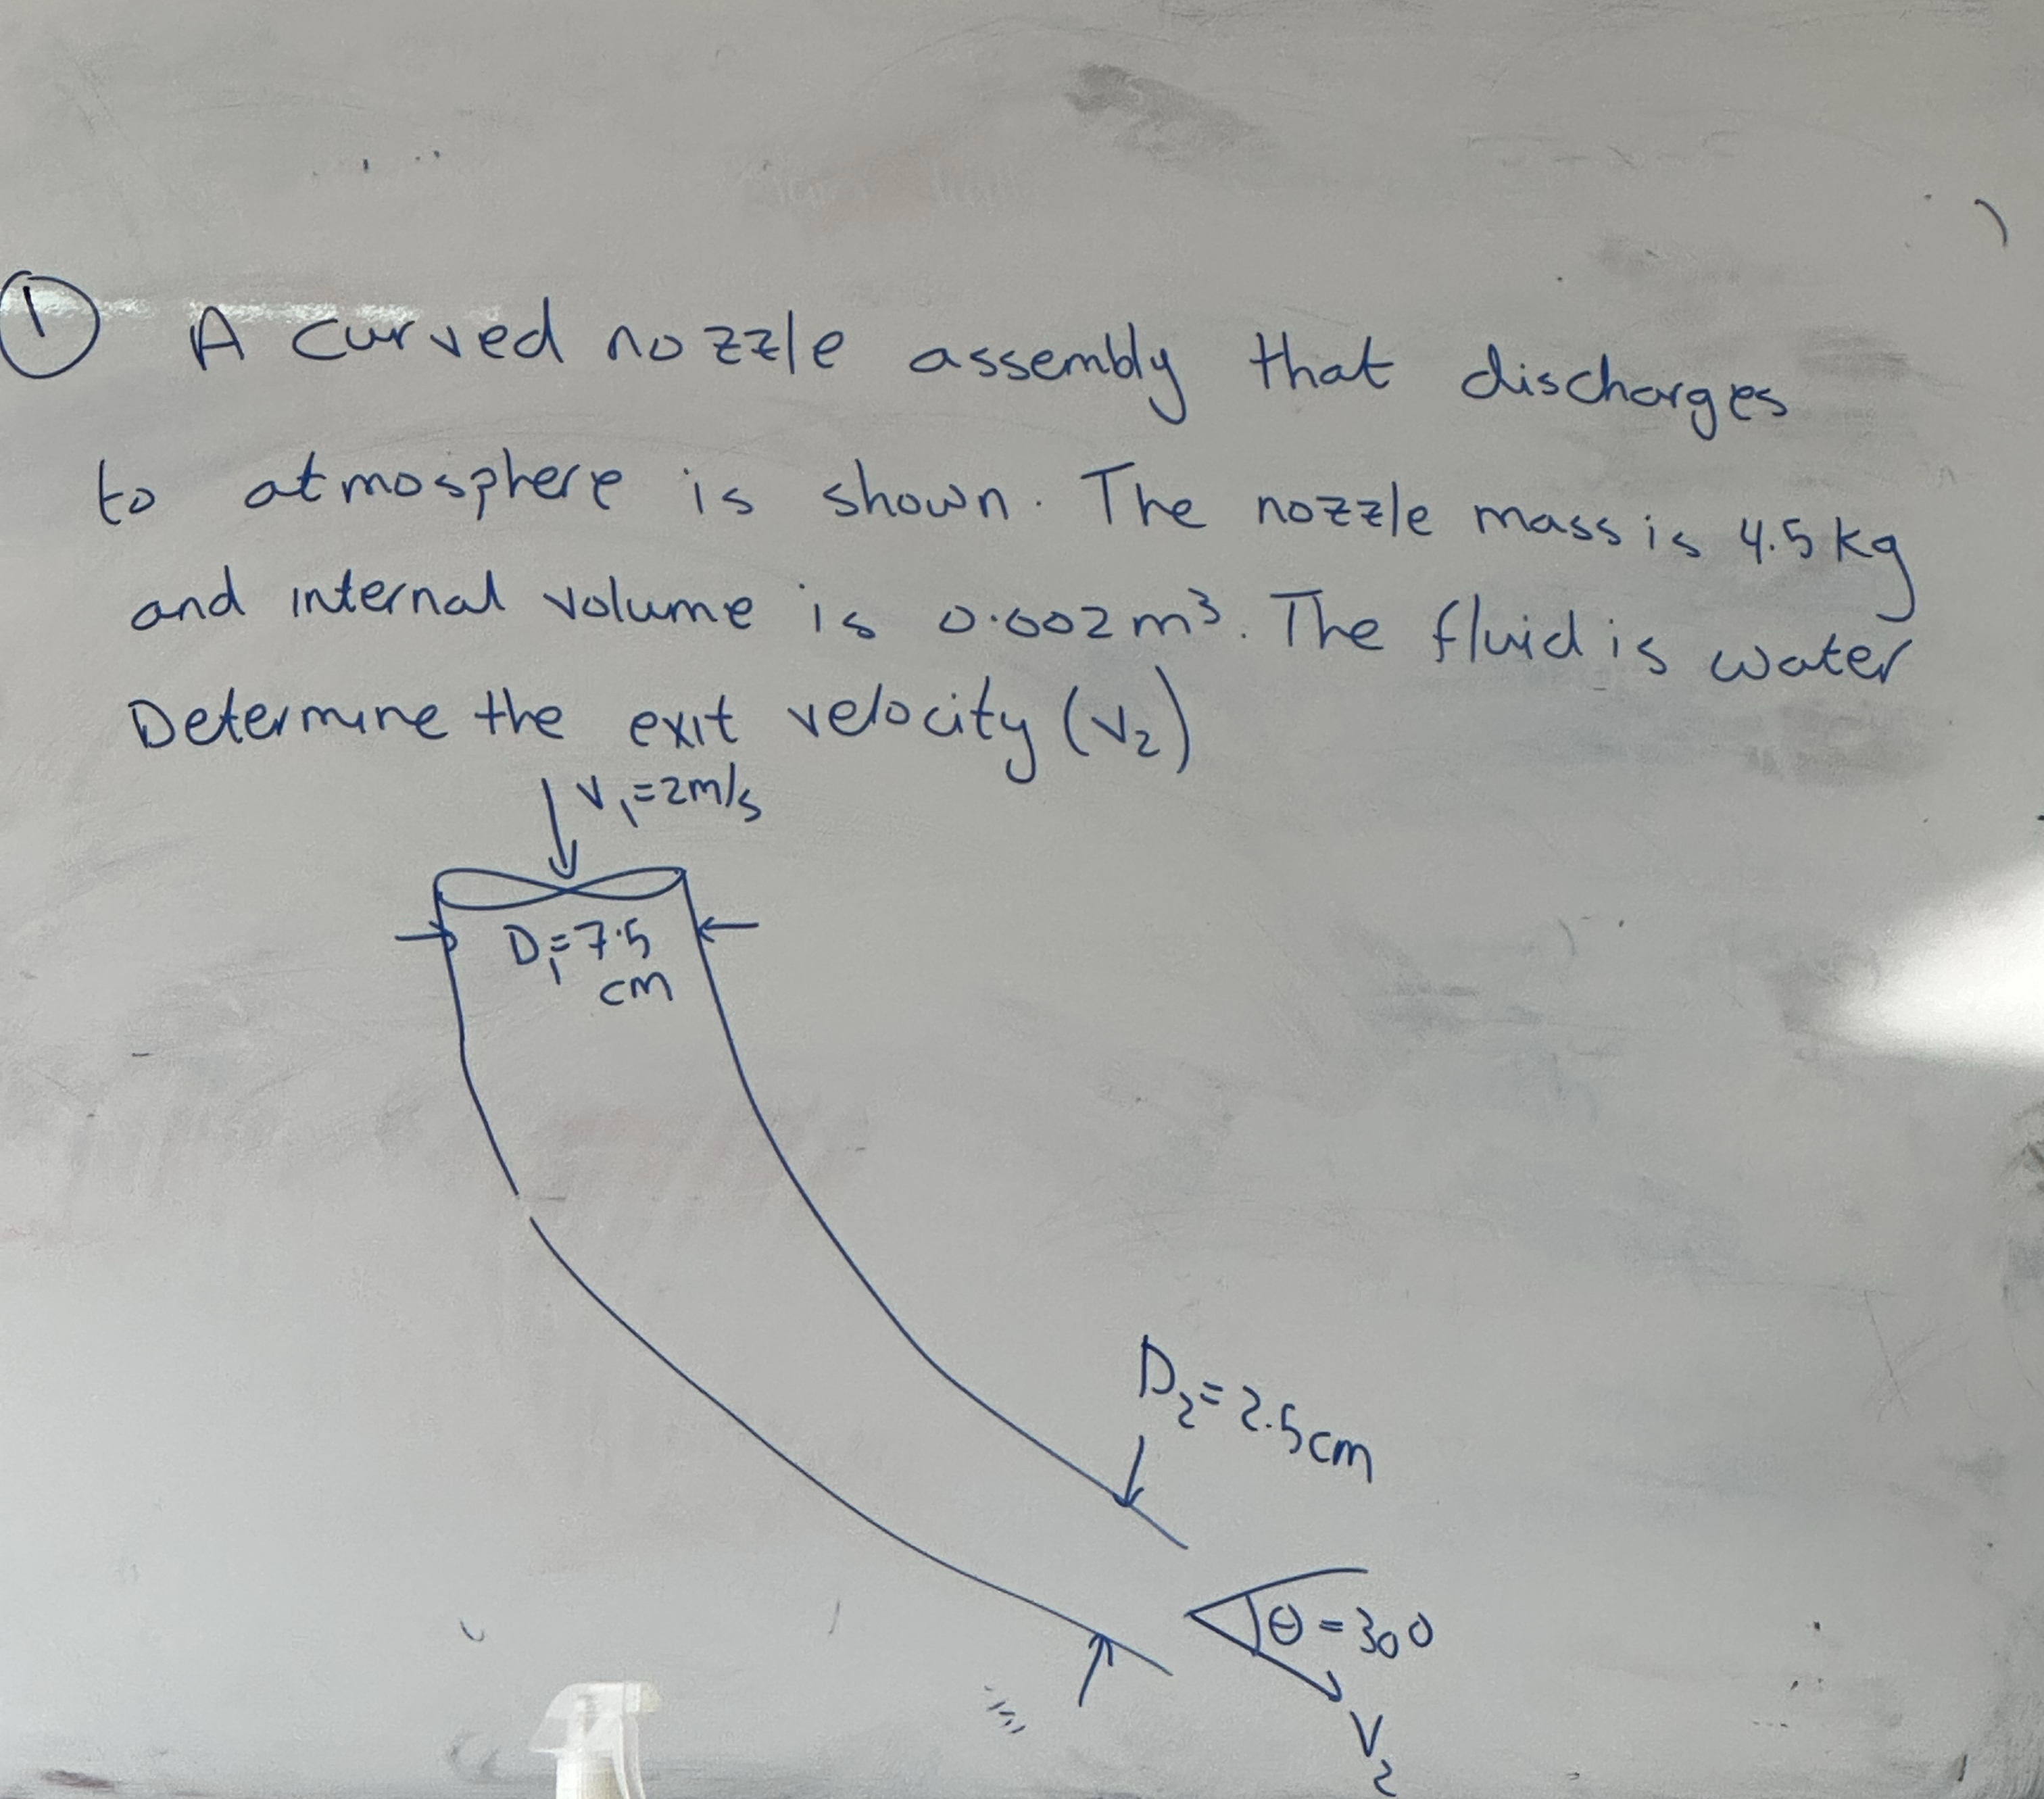 ① A curved nozzle assembly that discharges
to atmosphere is shown. The nozzle mass is 4.5 kg
and internal volume is 0.002 m³. The fluid is water
Determine the exit velocity (V₂)
V₁ = 2m/s
D₁ = 7.5
cm
D₂ = 2.5cm
θ = 30°
V₂